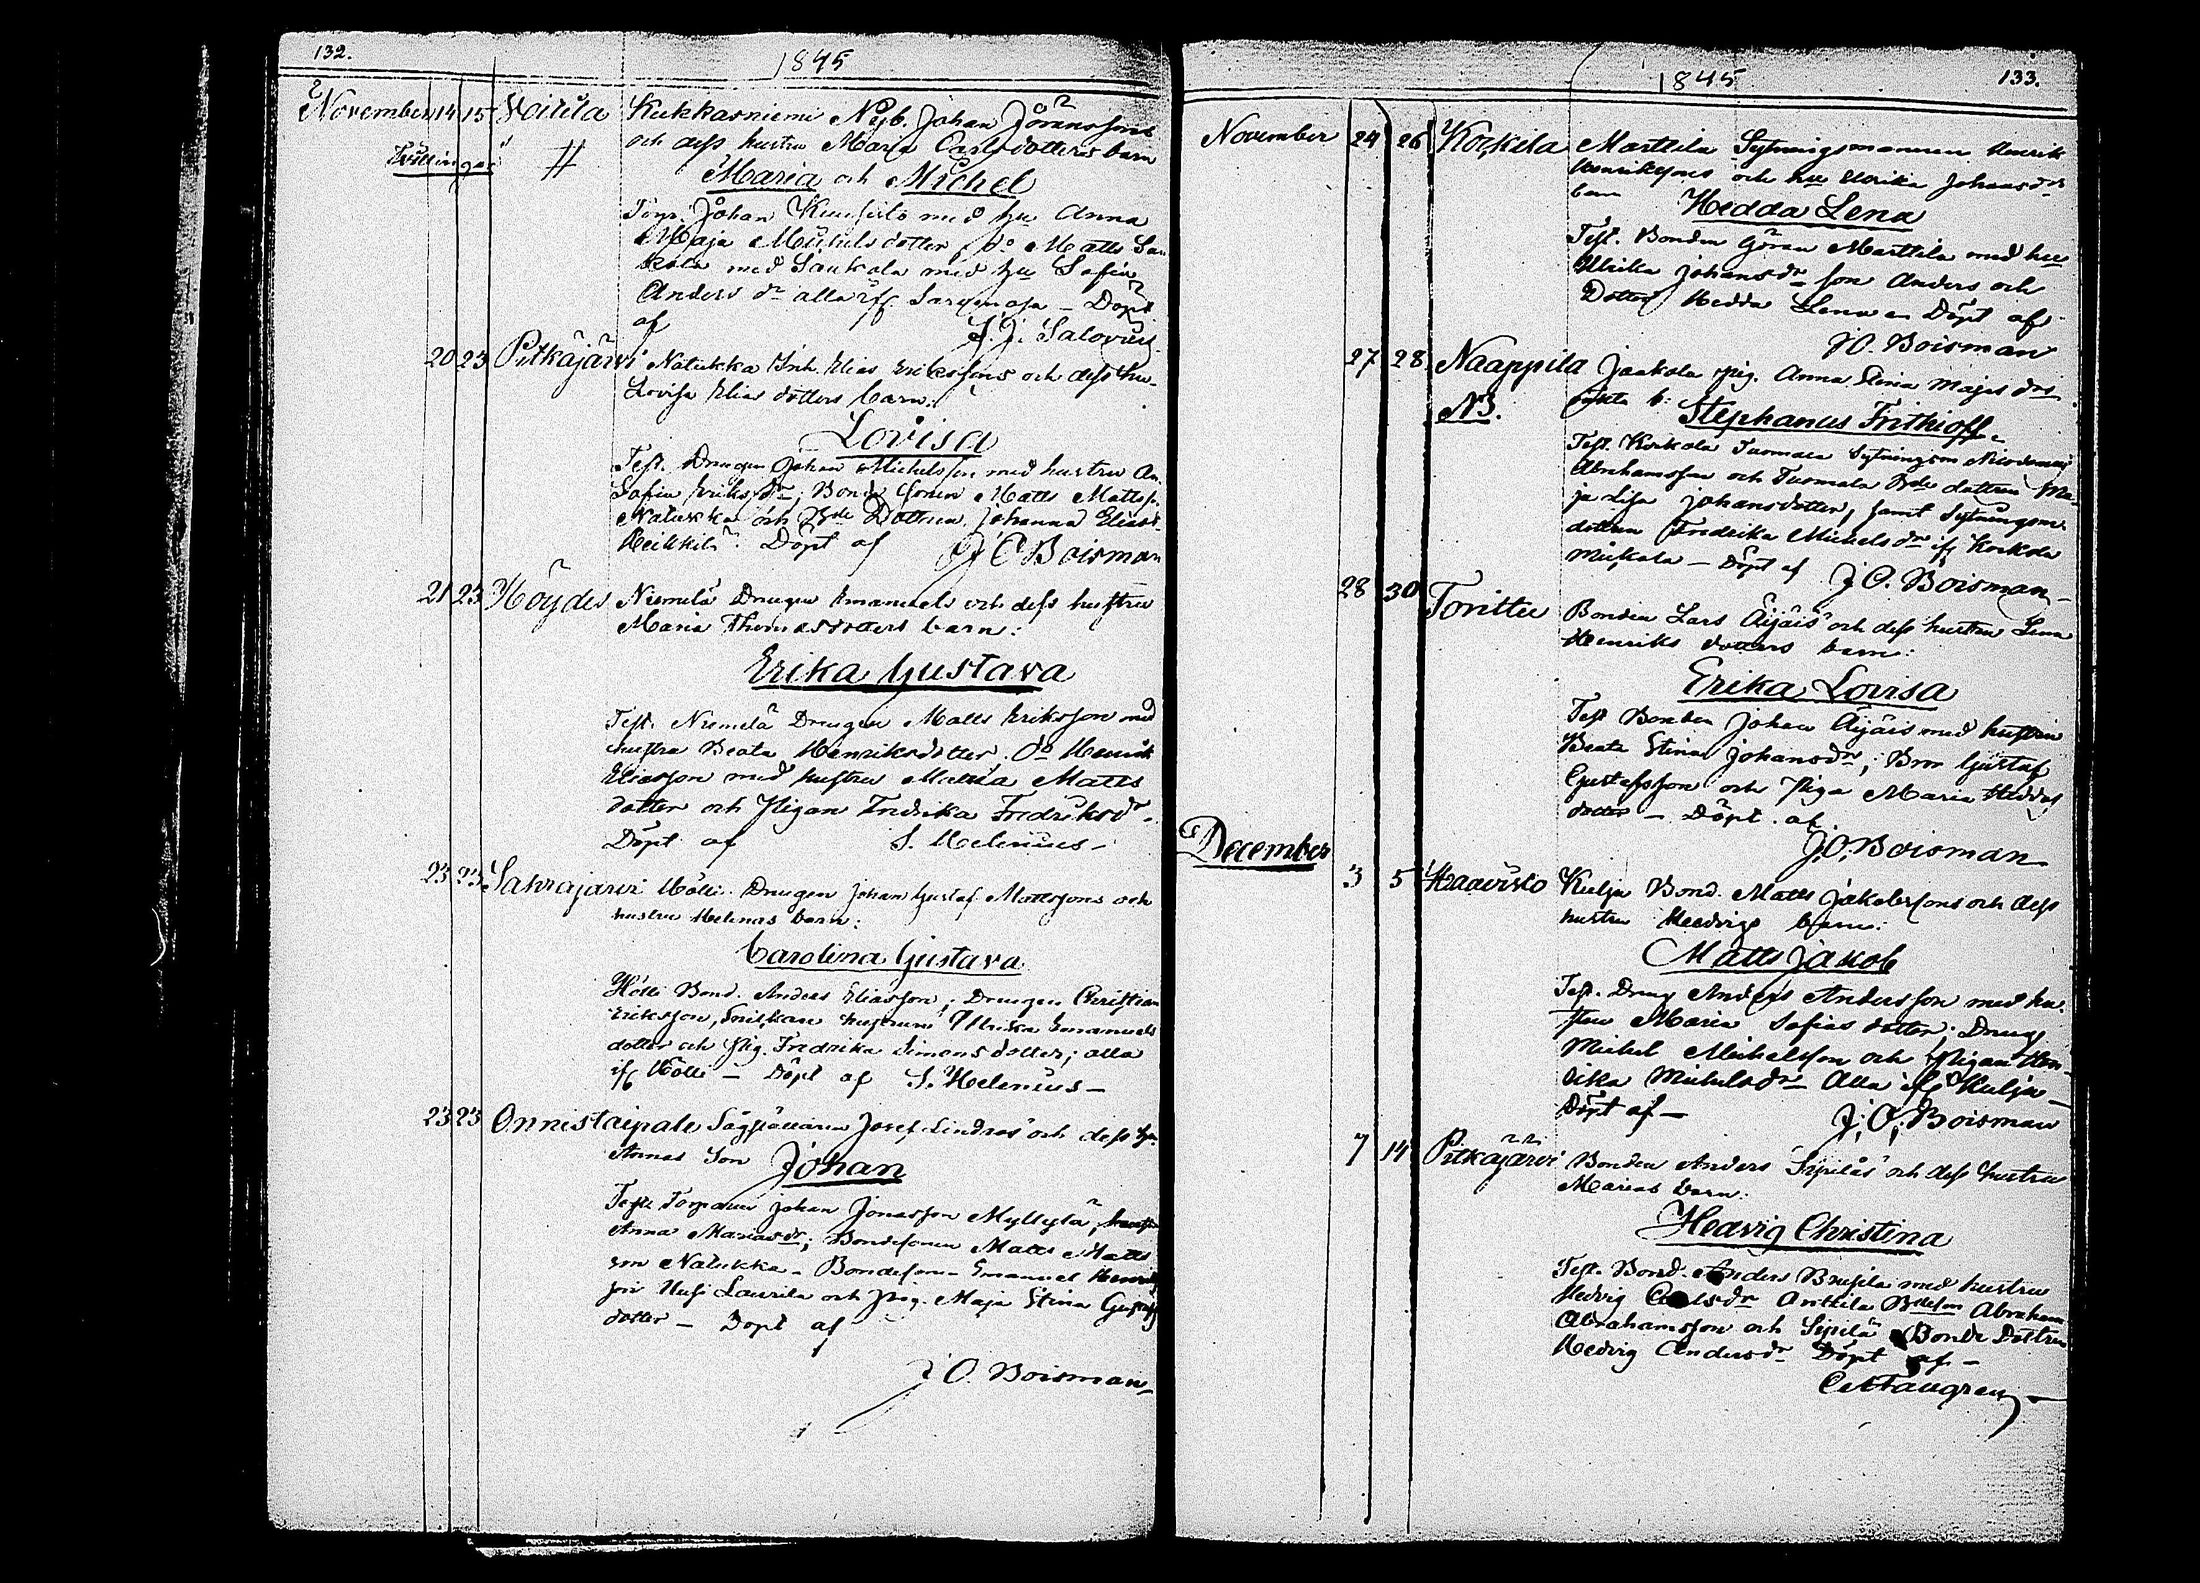 132.
1845
November 14 15 Kukkasniemi Nyb. Johan Jöranssons
och dess hustru Maria Carlsdotters barn
Tvillingar
Maria och Michel
Johan med hu Anna
Maja Michelsdotter, do Matts
med med hu Sofia
Anders dr alla ifr Döpt
af
20 23 Pitkäjärvi Natukka Inh. Elias Erikssons och dess hu
Lovisa Elias dotters barn:
Lovisa
Test. Drengen Johan Michelsson med hustru An.
Sofia Eriks dr; Bonde sonen Matts Mattss.
Natukka och Bde Dottren Johanna Eliasd.
Heikkilä. Döpt af J O Boisman
21 23 Höydes Niemelä Drengen Emanuels och dess hustru
Maria Thomasdotters barn:
Erika Gustava
Test. Niemelä Drengen Matts Eriksson med
hustru Beata Henriksdotter. Do Henrik
Eliasson med hustru Maria Matts
dotter och Pigan Fredrika Fredriksdr
Döpt af S. Helenius
23 23 Sahrajärvi Hölli Drengen Johan Gustaf Mattssons och
hustru Helenas barn:
Carolina Gustava
Hölli Bond. Anders Eliasson; Drengen Christian
Eriksson, hustrun Ulrika Emanuels
dotter och Pig. Fredrika Simons dotter; alla
ifr Hölli — Döpt af S. Helenius
23 23 Onnistaipale Josef Lindroos och dess hu.
Annas Son Johan
Test. Torparen Johan Jonasson Myllylä,
Anna Mariasdr; Bondesonen Matts Matts
son Natukka — Bondeson Emanuel Henriks
son Laurila och pig. Maja Stina Gustafs
dotter — Döpt af
J O. Boisman
1845
133.
November 24 26 Korkila Marttila Sytningsmannen Henrik
Henrikssons och hu Ulrika Johansdrs
barn
Hedda Lena
Test. Bonden Göran Marttila med hu
Ulrika Johansdr son Anders och
Dotter Hedda Lena Döpt af
J O. Boisman
27 28 Naappila Jaakola pig. Anna Stina Majas drs
N3. oäkta b: Stephanus Frithioff
Test. Korkola Tuomala Nicodemus
Abrahamsson och Tuomala Bde dottren Ma
ja Lisa Johansdotter, samt Sytningsm.
dottren Fredrika Michelsdr ifr Korkola
— Döpt af J O. Boisman
28 30 Torittu Bonden Lars Äijäis och dess hustru Lena
Henriks dotters barn:
Erika Lovisa
Test Bonden Johan Äijäis med hustru
Beata Stina Johansdr; Bror Gustaf
Gustafsson och Piga Maria
dotter — Döpt af
J. O. Boisman
December
3 5 Haavisto Kulja Bond. Matts Jakobssons och dess
hustru Hedvigs barn:
Matts Jakob
Test. Dreng Anders Andersson med hu
stru Maria Sofias dotter; Dreng
Michel Michelsson och Pigan Hen
rika Michelsdr — Alla ifr Kulja —
Döpt af — J. O. Boisman
7 14 Pitkäjärvi Bonden Anders Sipiläs och dess hustru
Marias barn:
Hedvig Christina
Test. Bond. Anders med hustru
Hedvig Carlsdr Anttila Bdeson Abraham
Abrahamsson och Sipilä Bonde Dottren
Hedvig Andersdr Döpt af —